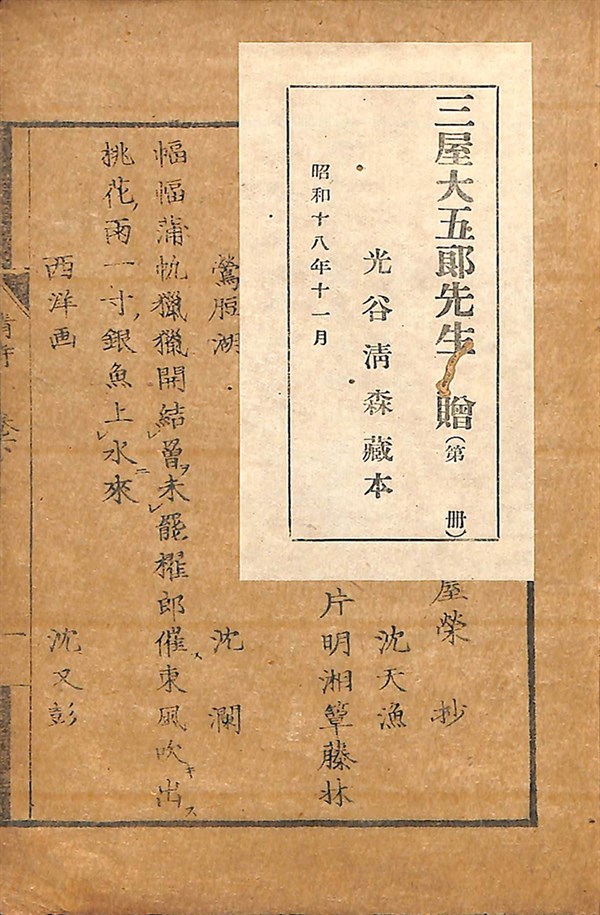 三屋大五郎先生贈(第 冊)
光谷清森藏本
昭和十八年十一月
屋榮 抄
沈天漁
片明湘簟藤牀
鶯脰湖 沈瀾
幅幅蒲帆獵獵開結罾未罷櫂郎催東風吹出
桃花雨一寸銀魚上水來
西洋画 沈又彭